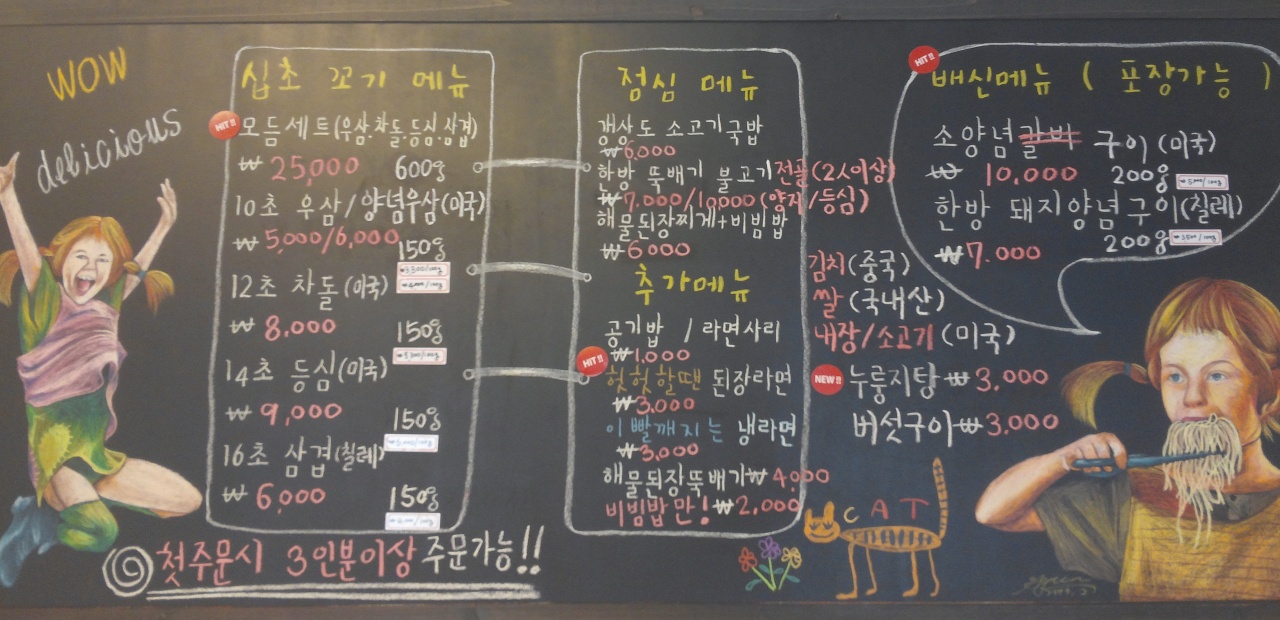 WOW
delicious
십초 꼬기 메뉴
HIT!!
모듬세트(우삼.차돌.등심.삼겹)
₩ 25,000 600g
10초 우삼/양념우삼(미국)
₩ 5,000/6,000 150g
12초 차돌(미국)
₩ 8,000 150g
14초 등심(미국)
₩ 9,000 150g
16초 삼겹(칠레)
₩ 6,000 150g
첫주문시 3인분이상 주문가능!!
점심 메뉴
갱상도 소고기국밥
₩6,000
한방 뚝배기 불고기전골(2人이상)
₩7.000/10,000(양지/등심)
해물된장찌게+비빔밥
₩6000
추가메뉴
공기밥 / 라면사리
₩1,000
HIT!!
헛헛할땐 된장라면
₩3,000
이빨깨지는 냉라면
₩3,000
해물된장뚝배기₩4,000
비빔밥만!₩2,000
HIT!!
배신메뉴 ( 포장가능 )
소양념갈비 구이(미국)
₩ 10,000 200g
한방 돼지양념구이(칠레)
₩7.000 200g
김치(중국)
쌀(국내산)
내장/소고기(미국)
NEW!!
누룽지탕 ₩3,000
버섯구이 ₩3.000
CAT